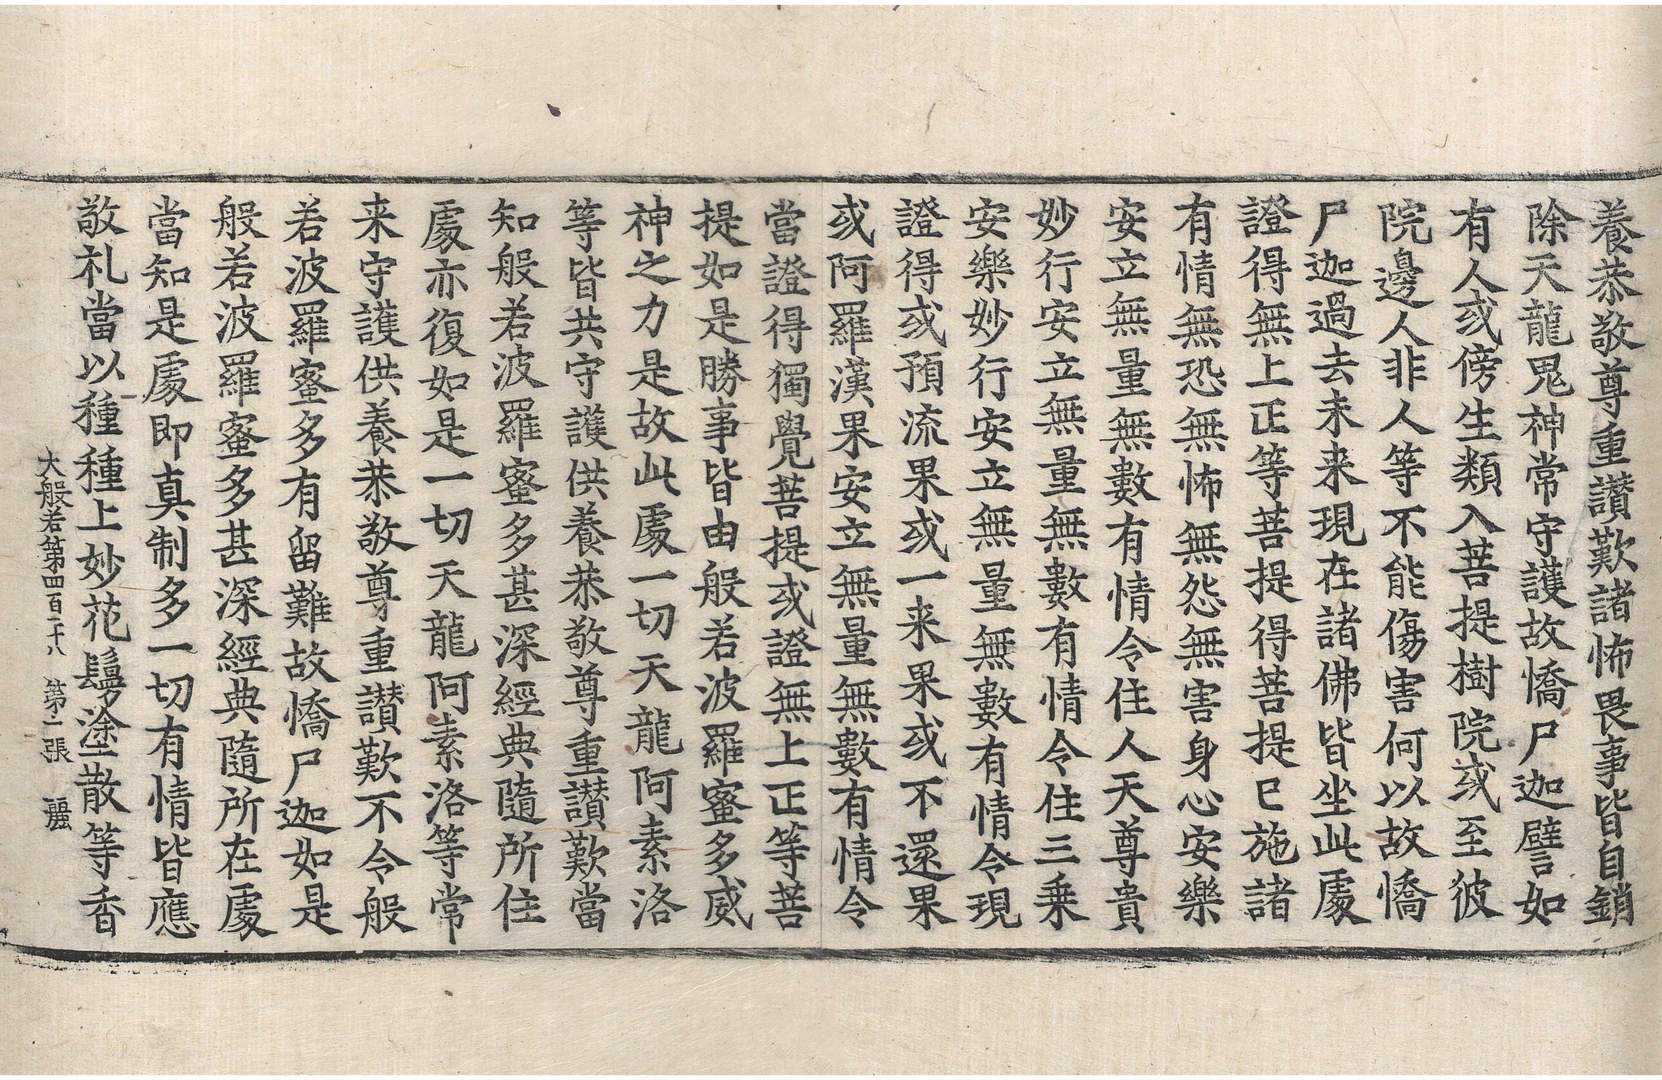 養恭敬尊重讃歎諸怖畏事皆自銷
除天龍鬼神常守護故憍尸迦譬如
有人或傍生類入菩提樹院或至彼
院邊人非人等不能傷害何以故憍
尸迦過去未来現在諸佛皆坐此處
證得無上正等菩提得菩提已施諸
有情無恐無怖無怨無害身心安樂
安立無量無數有情令住人天尊貴
妙行安立無量無數有情令住三乗
安樂妙行安立無量無數有情令現
證得或預流果或一来果或不還果
或阿羅漢果安立無量無數有情令
當證得獨覺菩提或證無上正等菩
提如是勝事皆由般若波羅蜜多威
神之力是故此處一切天龍阿素洛
等皆共守護供養恭敬尊重讃歎當
知般若波羅蜜多甚深經典隨所住
處亦復如是一切天龍阿素洛等常
来守護供養恭敬尊重讃歎不令般
若波羅蜜多有留難故憍尸迦如是
般若波羅蜜多甚深經典隨所在處
當知是處即真制多一切有情皆應
敬礼當以種種上妙花鬘塗散等香
大般若第四百二十八 第二張 麗